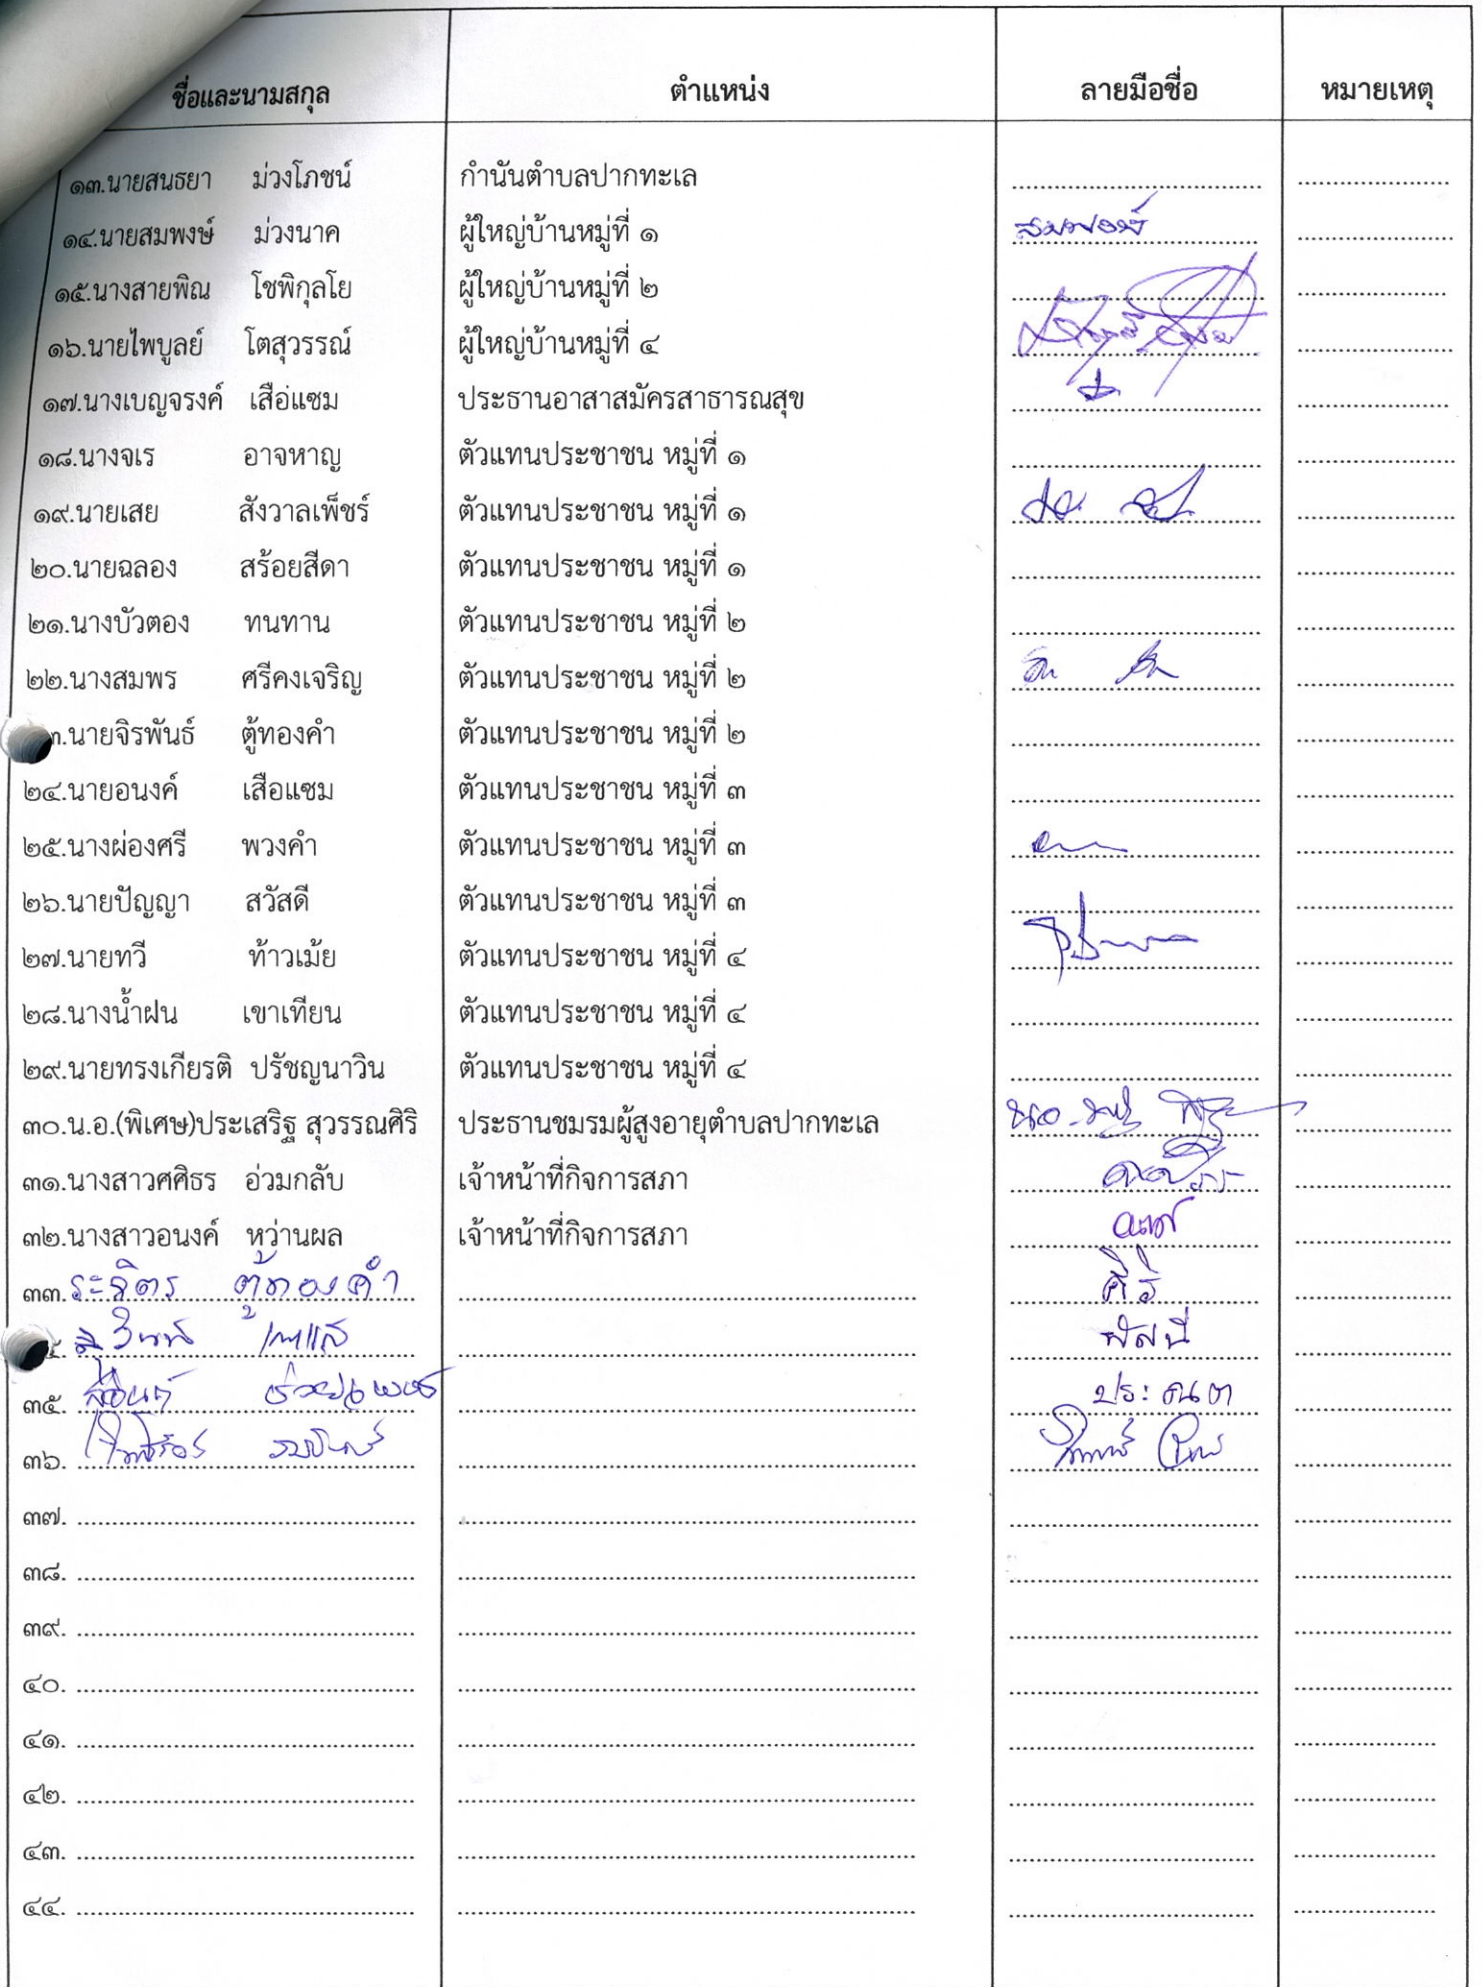 ชื่อและนามสกุล ตำแหน่ง ลายมือชื่อ หมายเหตุ
๑๓.นายสนธยา ม่วงโภชน์ กำนันตำบลปากทะเล
๑๔.นายสมพงษ์ ม่วงนาค ผู้ใหญ่บ้านหมู่ที่ ๑ สมพงษ์
๑๕.นางสายพิณ โชพิกุลโย ผู้ใหญ่บ้านหมู่ที่ ๒
๑๖.นายไพบูลย์ โตสุวรรณ์ ผู้ใหญ่บ้านหมู่ที่ ๔
๑๗.นางเบญจรงค์ เสือ่แซม ประธานอาสาสมัครสาธารณสุข
๑๘.นางจเร อาจหาญ ตัวแทนประชาชน หมู่ที่ ๑
๑๙.นายเสย สังวาลเพ็ชร์ ตัวแทนประชาชน หมู่ที่ ๑
๒๐.นายฉลอง สร้อยสีดา ตัวแทนประชาชน หมู่ที่ ๑
๒๑.นางบัวตอง ทนทาน ตัวแทนประชาชน หมู่ที่ ๒
๒๒.นางสมพร ศรีคงเจริญ ตัวแทนประชาชน หมู่ที่ ๒
๓.นายจิรพันธ์ ตู้ทองคำ ตัวแทนประชาชน หมู่ที่ ๒
๒๔.นายอนงค์ เสือแซม ตัวแทนประชาชน หมู่ที่ ๓
๒๕.นางผ่องศรี พวงคำ ตัวแทนประชาชน หมู่ที่ ๓
๒๖.นายปัญญา สวัสดี ตัวแทนประชาชน หมู่ที่ ๓
๒๗.นายทวี ท้าวเม้ย ตัวแทนประชาชน หมู่ที่ ๔
๒๘.นางน้ำฝน เขาเทียน ตัวแทนประชาชน หมู่ที่ ๔
๒๙.นายทรงเกียรติ ปรัชญนาวิน ตัวแทนประชาชน หมู่ที่ ๔
๓๐.น.อ.(พิเศษ)ประเสริฐ สุวรรณศิริ ประธานชมรมผู้สูงอายุตำบลปากทะเล
๓๑.นางสาวศศิธร อ่วมกลับ เจ้าหน้าที่กิจการสภา
๓๒.นางสาวอนงค์ หว่านผล เจ้าหน้าที่กิจการสภา
๓๓. ระจิตร ตู้ทองคำ
๓๕.
๓๖.
๓๗.
๓๘.
๓๙.
๔๐.
๔๑.
๔๒.
๔๓.
๔๔.